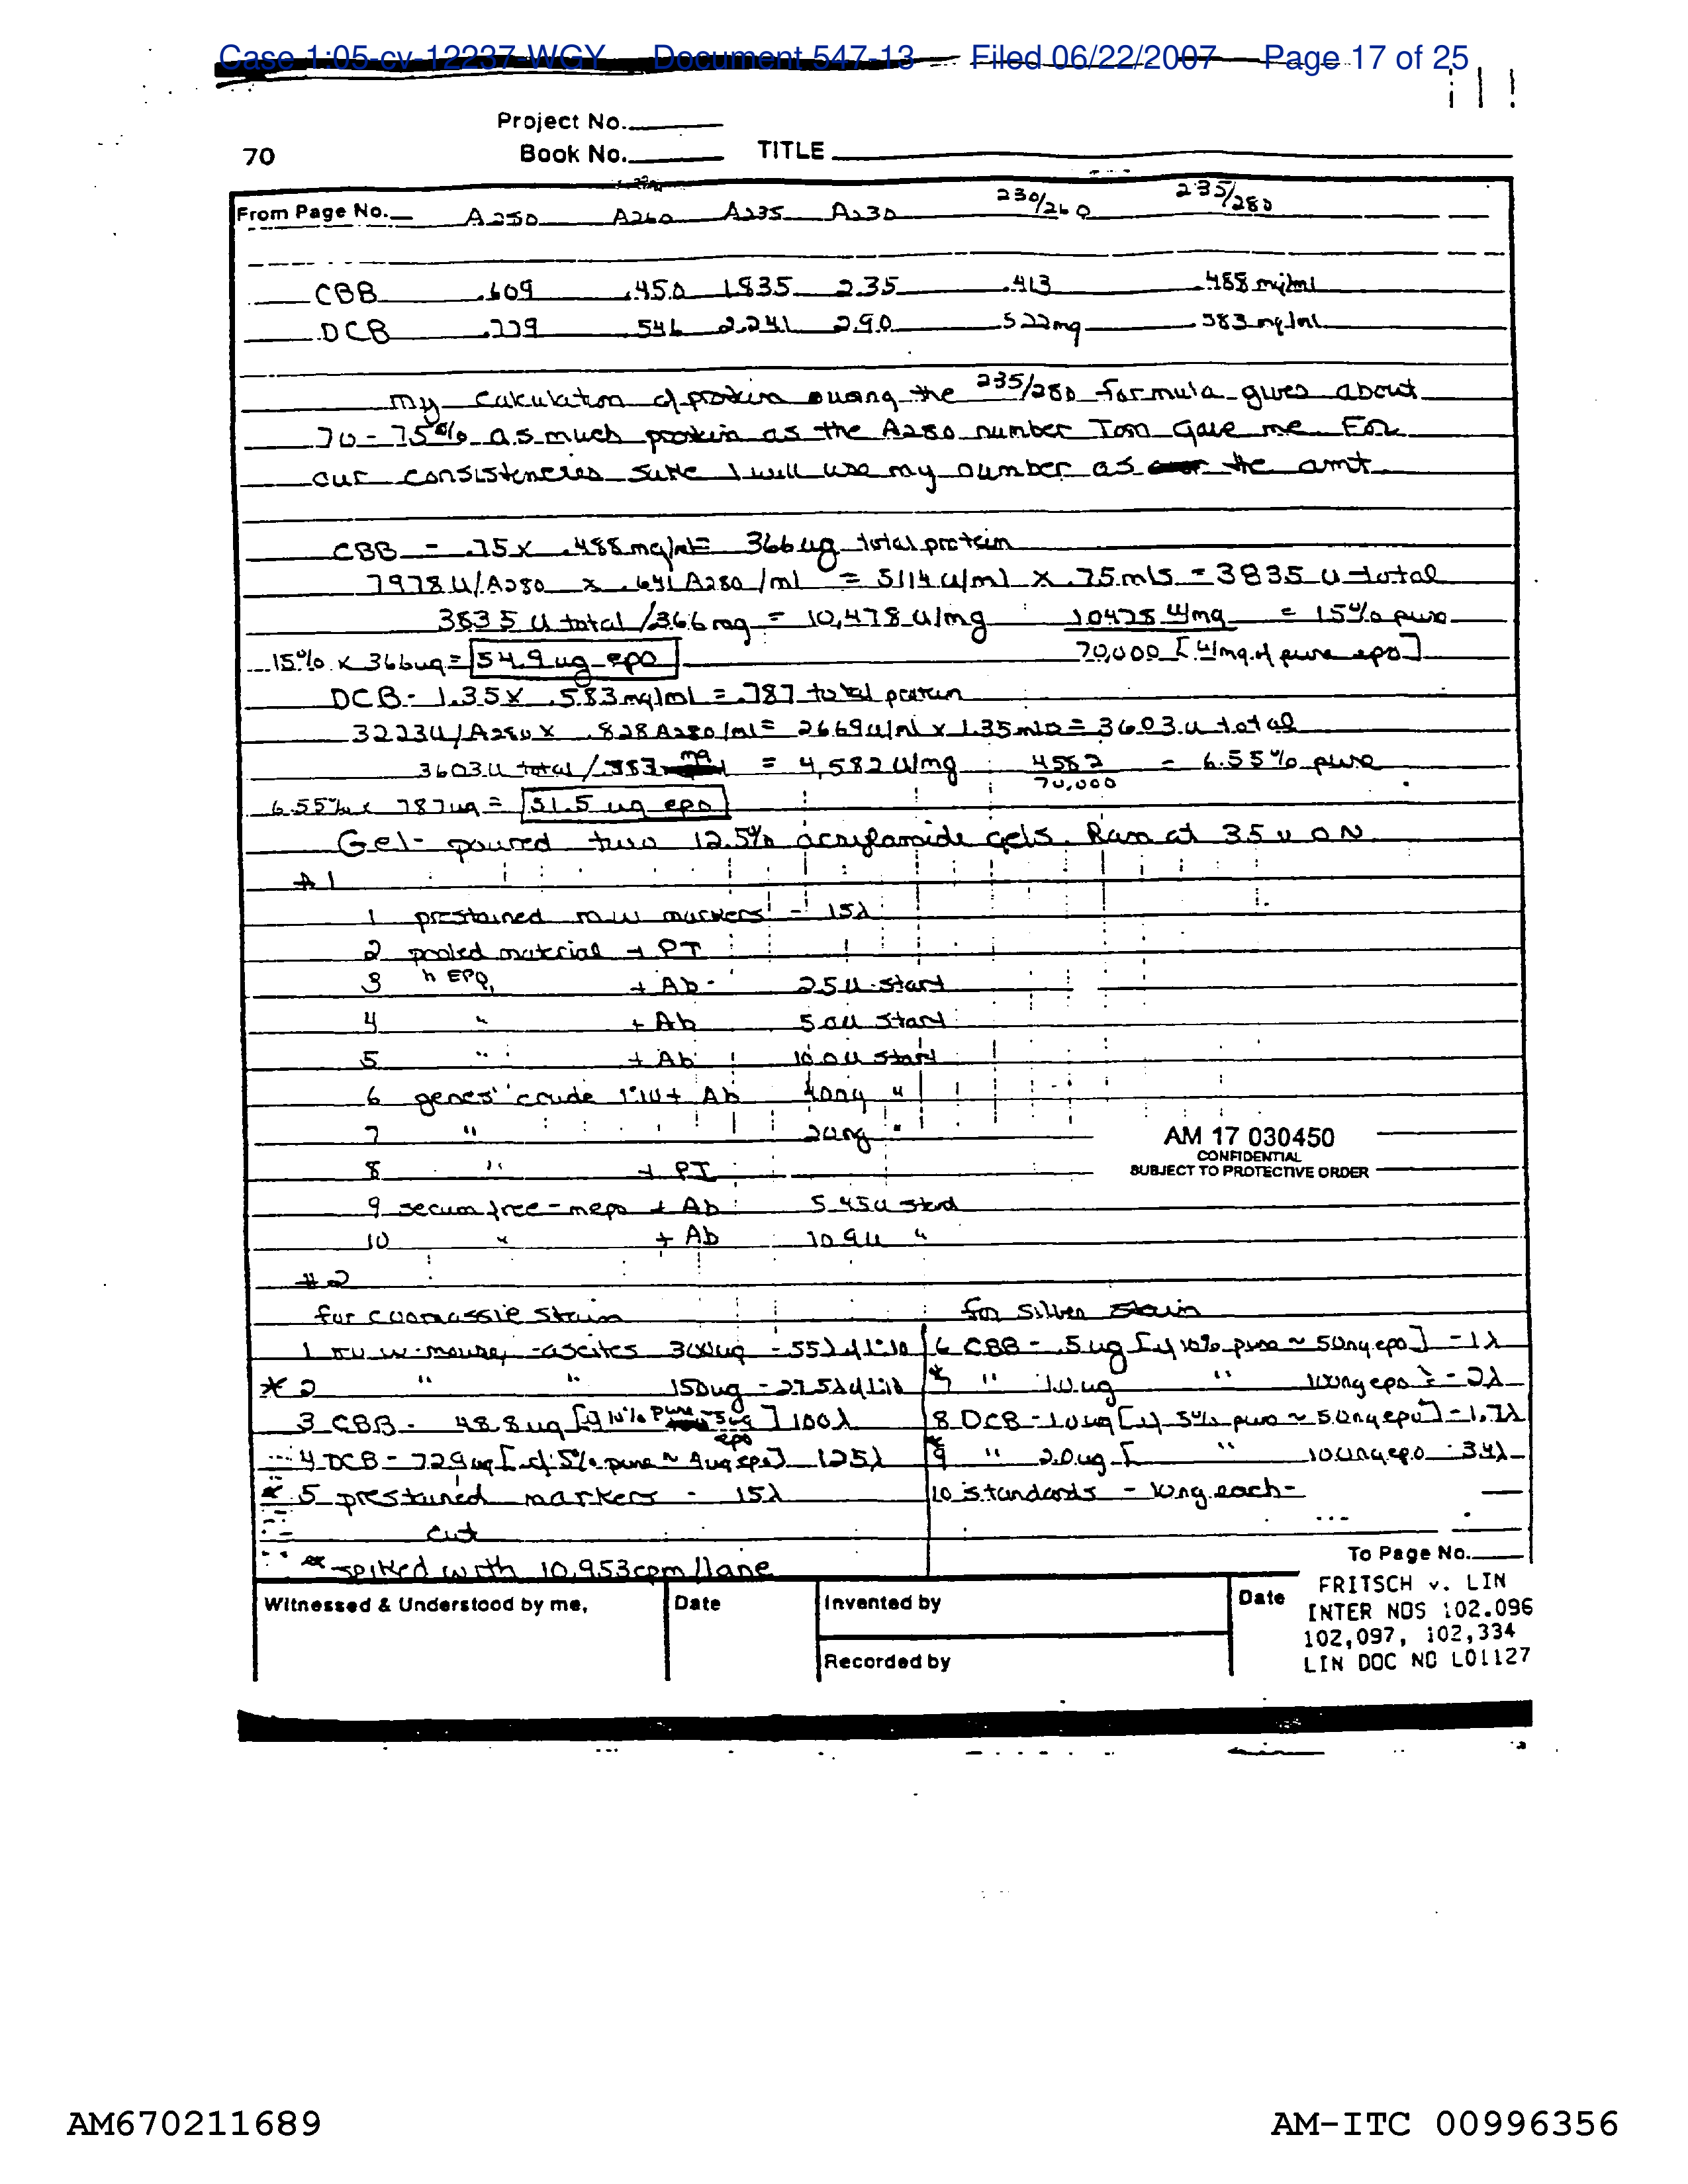 Case 1:05-cv-12237-WGY Document 547-13 Filed 06/22/2007 Page 17 of 25
Project No.
70 Book No. TITLE
From Page No. A280 A260 A235 A230 230/260 235/280
CBB .609 .450 1.835 2.35 .413 .488 mg/ml
DCB .779 .546 2.241 2.90 .522mg .583 mg/ml
my calculation of protein using the 235/280 formula gives about
70-75% as much protein as the A280 number Tom gave me. For
our consistencies sake I will use my number as the amt
CBB - .75 x .488 mg/ml = 366 ug total protein
7978 U/A280 x .641 A280/ml = 5114 U/ml x .75 mls = 3835 U total
3835 U total / .366 mg = 10,478 U/mg 10478 U/mg = 15% pure
15% x 366ug = 54.9 ug epo 70,000 [U/mg of pure epo]
DCB - 1.35 x .583 mg/ml = .787 total protein
3223U/A280 x .828 A280/ml = 2669 U/ml x 1.35 mls = 3603 U total
3603 U total / mg = 4,582 U/mg 4582 = 6.55% pure
70,000
6.55% x 787ug = 51.5 ug epo
Gel - poured two 12.5% acrylamide gels. Ran at 35 v ON
#1
1 prestained mw markers - 15λ
2 pooled material + PI
3 h EPO, + Ab - 25U start
4 " + Ab 50U start
5 " + Ab 100U start
6 genes' crude 1:10 + Ab 40ng "
7 " 20ng "
8 " + PI
AM 17 030450
CONFIDENTIAL
SUBJECT TO PROTECTIVE ORDER
9 serum free - + Ab 5.45U start
10 " + Ab 10.9U "
#2
for coomassie stain for silver stain
1 mouse ascites 300ug - 55λ of 1:10 6 CBB - .5ug [if 10% pure ~ 50ng epo] - 1λ
* 2 " " 150ug - 27.5λ of 1:10 * 7 " 1.0ug " 100ng epo - 2λ
3 CBB - 48.8ug [if 10% pure ~ 5ug epo] 100λ 8 DCB - 1.0ug [if 5% pure ~ 50ng epo] - 1.7λ
4 DCB - 72.9ug [if 5% pure ~ 4ug epo] 125λ * 9 " 2.0ug [ " 100ng epo - 3.4λ
* 5 prestained markers - 15λ 10 standards - 10ng each -
cut
* spiked with 10,953cpm/lane
To Page No.
Witnessed & Understood by me, Date Invented by Date
Recorded by
FRITSCH v. LIN
INTER NOS 102.096
102,097, 102,334
LIN DOC NO L01127
AM670211689 AM-ITC 00996356